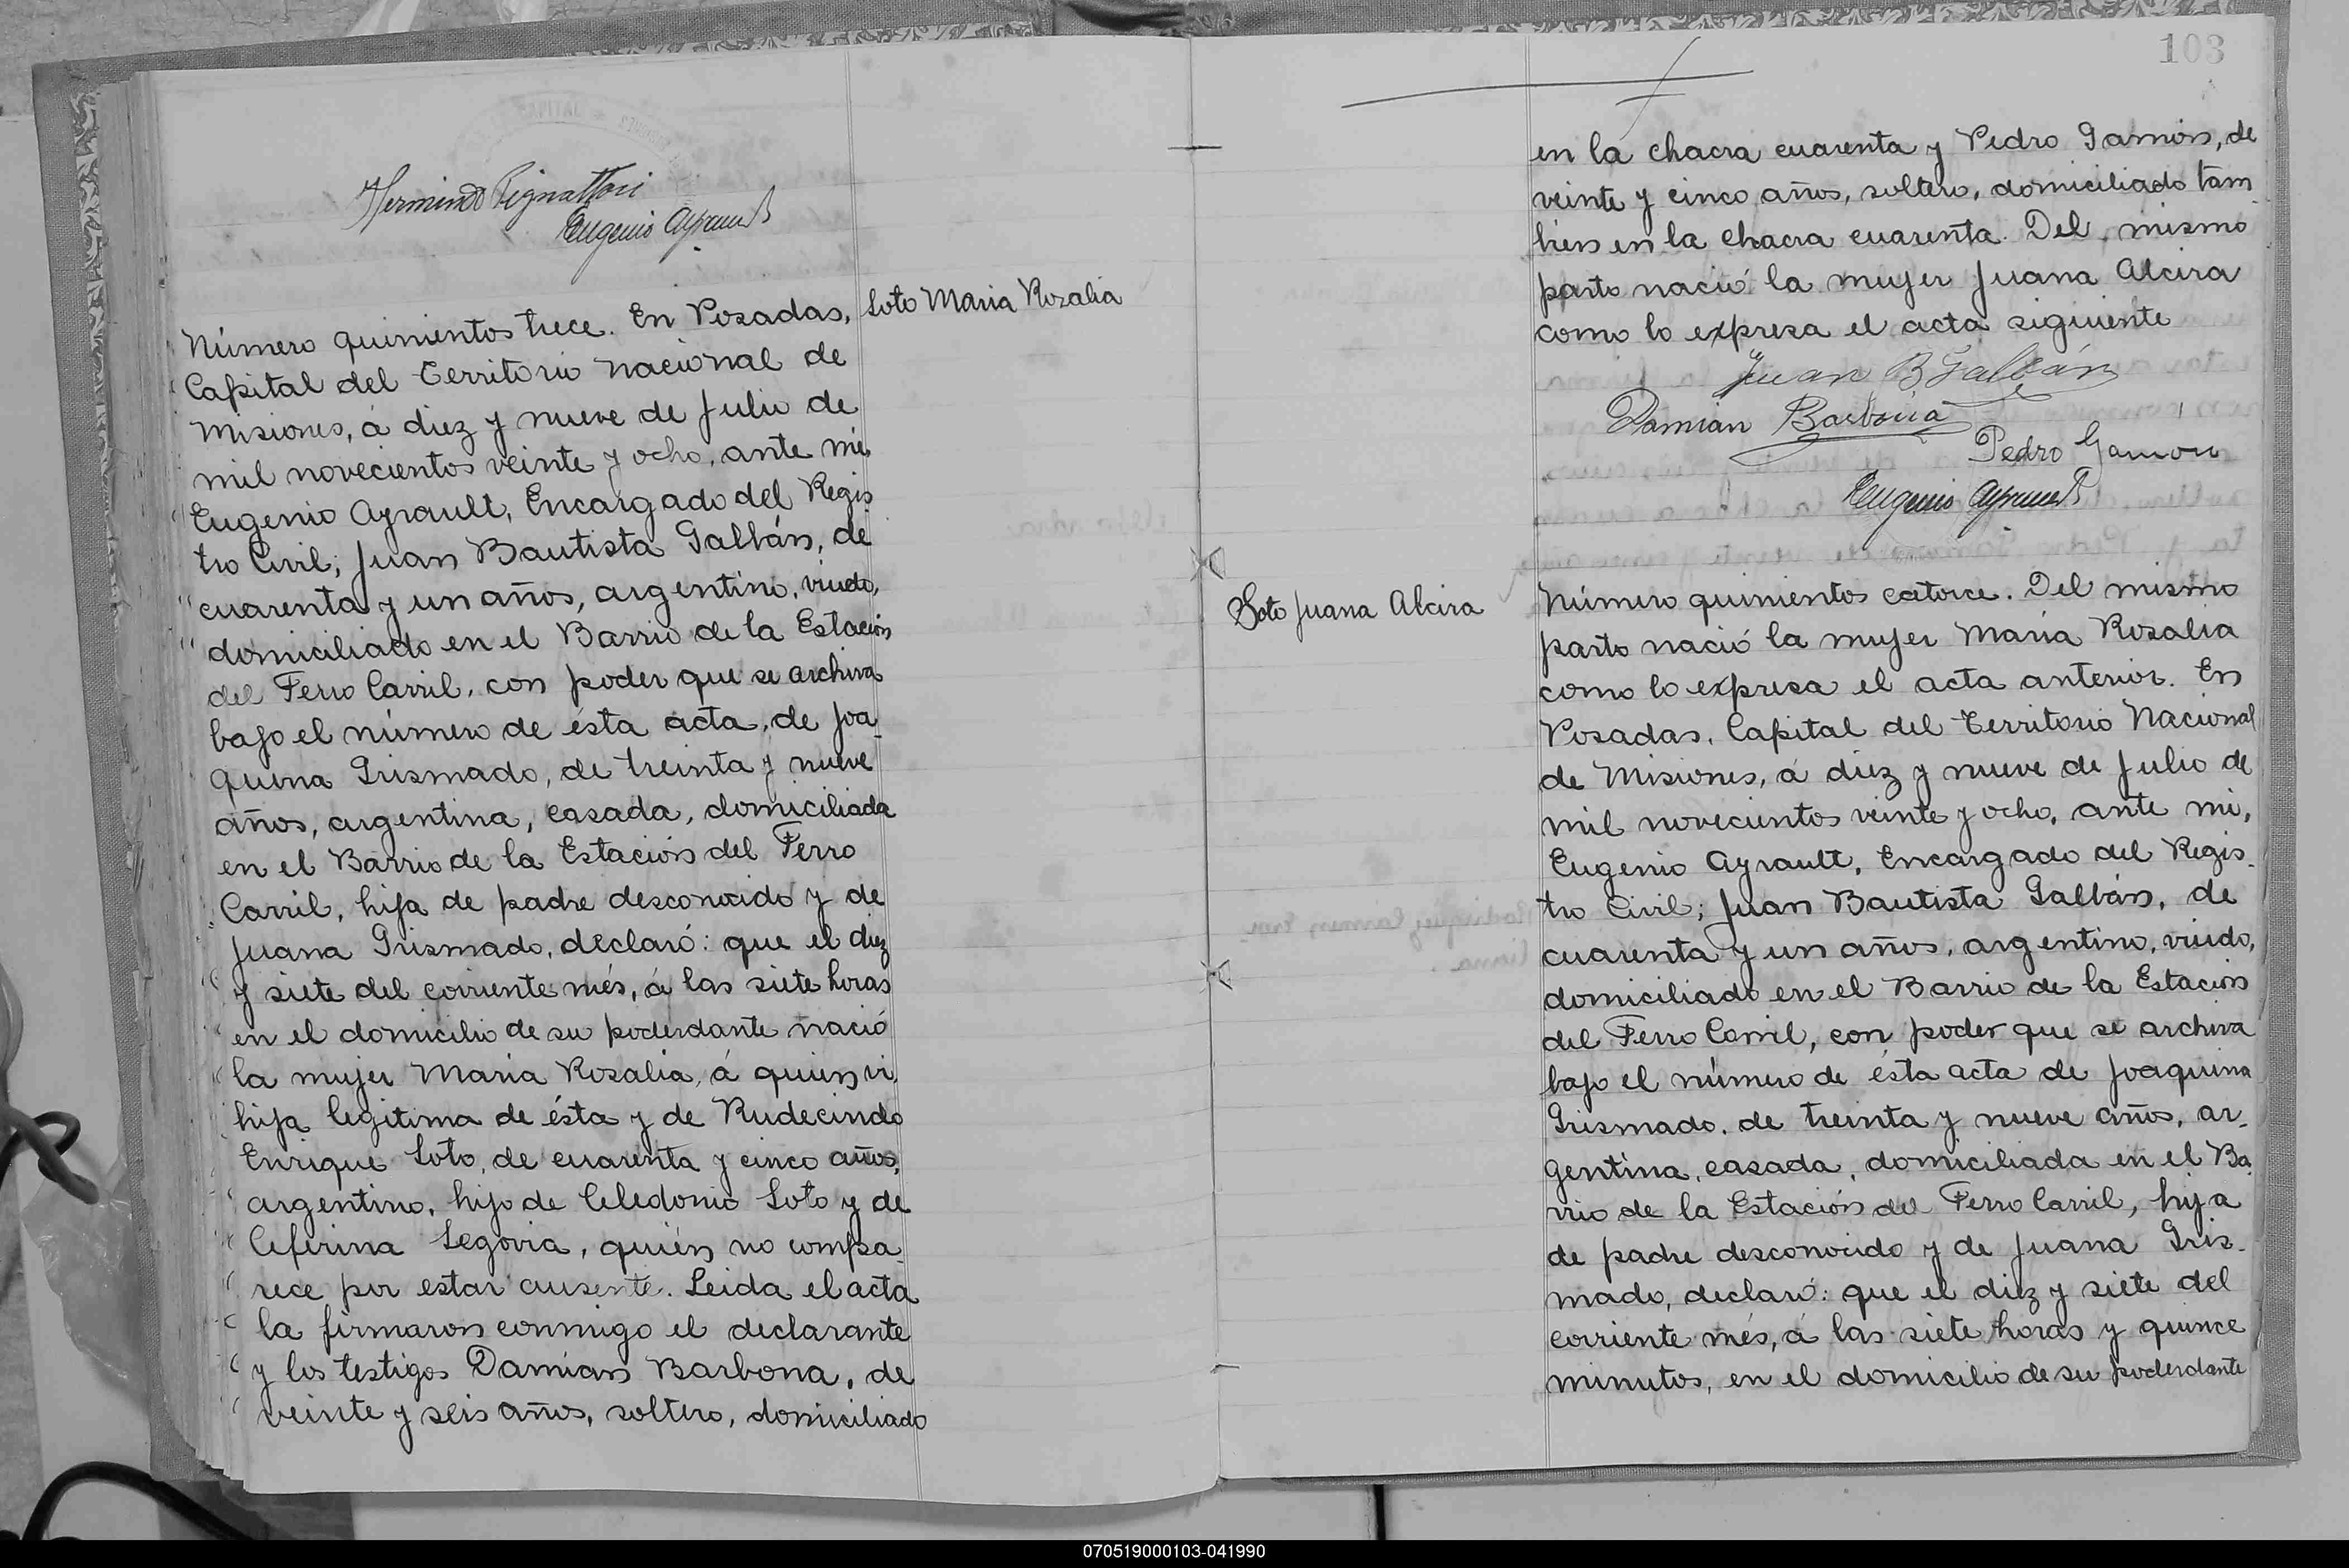 CAPITAL
Hermindo Pignattari
Eugenio Ayrault
Soto Maria Rosalia
Número quinientos trece. En Posadas,
Capital del Territorio Nacional de
Misiones, á diez y nueve de Julio de
mil novecientos veinte y ocho, ante mi,
Eugenio Ayrault, Encargado del Regis
tro Civil; Juan Bautista Galbán, de
cuarenta y un años, argentino, viudo,
domiciliado en el Barrio de la Estación
del Ferro Carril, con poder que se archiva
bajo el número de ésta acta, de Joa_
quina Grismado, de treinta y nueve
años, argentina, casada, domiciliada
en el Barrio de la Estación del Ferro
Carril, hija de padre desconocido y de
Juana Grismado, declaró: que el diez
y siete del corriente més, á las siete horas
en el domicilio de su poderdante nació
la mujer Maria Rosalia, á quien vi,
hija legitima de ésta y de Rudecindo
Enrique Soto, de cuarenta y cinco años,
argentino, hijo de Celedonio Soto y de
Ceferina Segovia, quién no compa_
rece por estar ausente. Leida el acta
la firmaron conmigo el declarante
y los testigos Damian Barbona, de
veinte y seis años, soltero, domiciliado
103
en la chacra cuarenta y Pedro Gamón, de
veinte y cinco años, soltero, domiciliado tam
bien en la chacra cuarenta. Del mismo
parto nació la mujer Juana Alcira
como lo expresa el acta siguiente
Juan B Galbán
Damian Barbona
Pedro Gamon
Eugenio Ayrault
Soto Juana Alcira
Número quinientos catorce. Del mismo
parto nació la mujer Maria Rosalia
como lo expresa el acta anterior. En
Posadas, Capital del Territorio Nacional
de Misiones, á diez y nueve de Julio de
mil novecientos veinte y ocho, ante mi,
Eugenio Ayrault, Encargado del Regis_
tro Civil; Juan Bautista Galbán, de
cuarenta y un años, argentino, viudo,
domiciliado en el Barrio de la Estación
del Ferro Carril, con poder que se archiva
bajo el número de ésta acta de Joaquina
Grismado, de treinta y nueve años, ar_
gentina, casada, domiciliada en el Ba_
rrio de la Estación del Ferro Carril, hija
de padre desconocido y de Juana Gris_
mado, declaró: que el diez y siete del
corriente més, á las siete horas y quince
minutos, en el domicilio de su poderdante
070519000103-041990